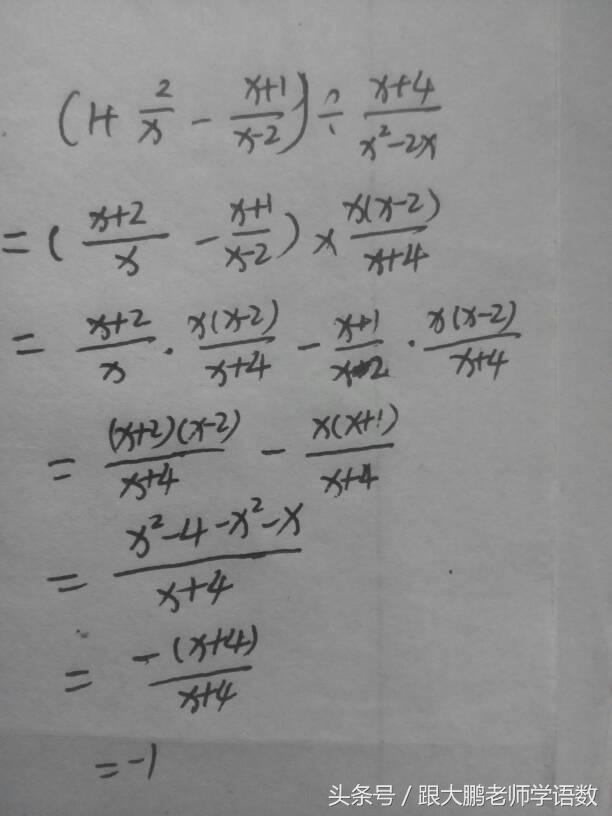 (1+ 2/x - (x+1)/(x-2)) ÷ (x+4)/(x²-2x)
= ((x+2)/x - (x+1)/(x-2)) × x(x-2)/(x+4)
= (x+2)/x · x(x-2)/(x+4) - (x+1)/(x-2) · x(x-2)/(x+4)
= (x+2)(x-2)/(x+4) - x(x+1)/(x+4)
= (x²-4-x²-x)/(x+4)
= -(x+4)/(x+4)
= -1
头条号 / 跟大鹏老师学语数